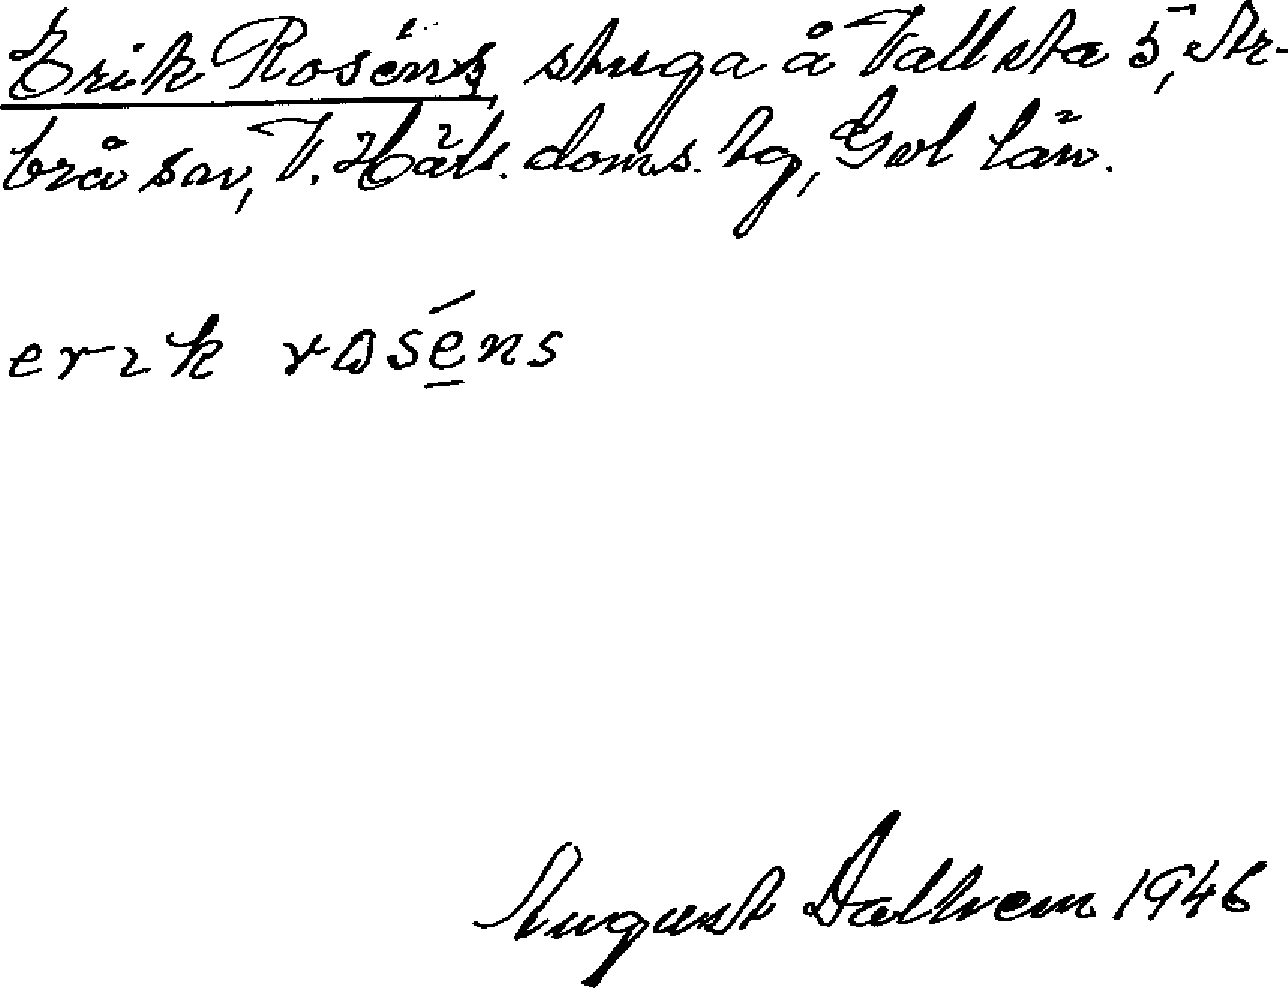 Erik Roséns stuga å Vallsta 5, Ar-
brå sn, V. Häls. doms. hg, Gvl län.
erık rosé̱ns
August Dalhem 1946